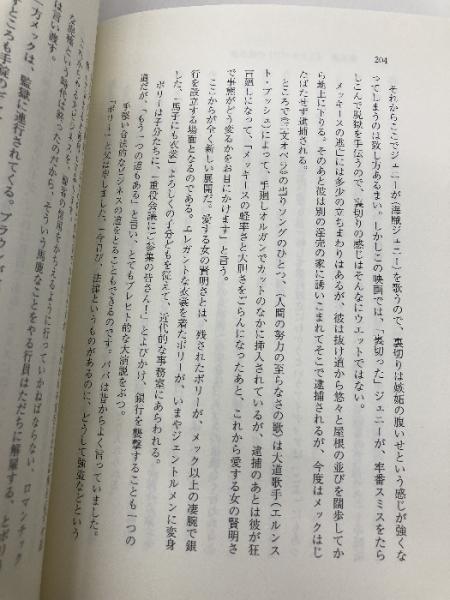 204
それからここでジェニーが〈海賊ジェニー〉を歌うので、裏切りは嫉妬の腹いせという感じが強くな
ってしまうのは致し方あるまい。しかしこの映画では、「裏切った」ジェニーが、牢番スミスをたら
しこんで脱獄を手伝うので、裏切りの感じはそんなにウエットではない。
メッキースの逃亡には多少の立ちまわりはあるが、彼は抜け道から悠々と屋根の並びを闊歩してか
ら地上に下りる。そのあと彼は別の淫売の家に誘いこまれてそこで逮捕されるが、今度はメックはじ
たばたせず逮捕される。
ところで『三文オペラ』の当りソングのひとつ、〈人間の努力の至らなさの歌〉は大道歌手（エルンス
ト・ブッシュ）によって、手廻しオルガンでカットのなかに挿入されているが、逮捕のあとは彼が狂
言廻しになって、「メッキースの軽率さと大胆さをごらんになったあと、これから愛する女の賢明さ
で事態がどう変るかをお目にかけます」と言う。
ここからが全く新しい展開だ。愛する女の賢明さとは、残されたポリーが、メック以上の凄腕で銀
行を設立する場面となるのである。エレガントな衣裳を着たポリーが、いまやジェントルメンに変身
した、「馬子にも衣裳」よろしくの子分どもを従えて、近代的な事務室にあらわれる。
ポリーは子分たちに、「重役会議にご参集の皆さん！」とよびかけ、銀行を襲撃することも一つの
道だが、「もう一つの道もある」と言い、とてもブレヒト的な大演説をぶつ。
手堅い合法的なビジネスの道をとることもできるのです。パパは昔からよく言っていました。
「ポリー」と父は申しました。「今日び、法律というものがあるのに、どうして強盗などという
な泥棒などという時代は終ったのだから、そういう馬鹿なことをやる行員はただちに解雇する、とポリ
ーは言い渡す。
一方メックは、監獄に連行されてくる。ブラウン